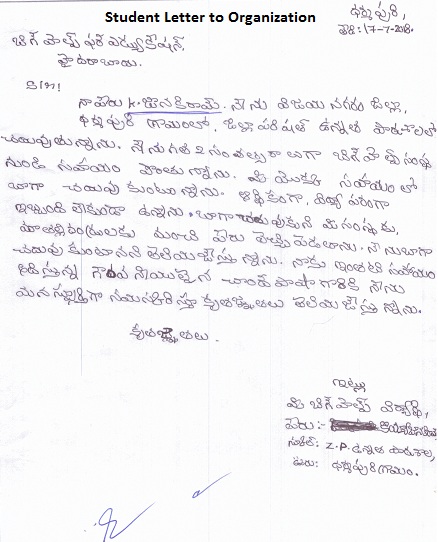 Student Letter to Organization
ధర్మపురి,
తేది: 17-7-2018.
బిగ్ హెల్ప్ ఫర్ ఎడ్యుకేషన్,
హైదరాబాదు.
సార్!
నా పేరు K. జానకిరామ్. నేను విజయనగరం జిల్లా,
ధర్మపురి గ్రామంలో, జిల్లా పరిషత్ ఉన్నత పాఠశాలలో
చదువుతున్నాను. నేను గత 2 సంవత్సరాలుగా బిగ్ హెల్ప్ సంస్థ
నుండి సహాయం పొందుతున్నాను. మీ యొక్క సహాయంతో
బాగా చదువుకుంటున్నాను. ఆర్థికంగా, విద్యా పరంగా
ఇబ్బంది లేకుండా ఉన్నాను. బాగా చదువుకుని మీ సంస్థకు,
మా తల్లిదండ్రులకు మంచి పేరు తెచ్చి పెడతాను. నేను బాగా
చదువుకుంటానని తెలియజేస్తున్నాను. నాకు ఇంతటి సహాయం
చేస్తున్న గౌరవనీయులైన చాంద్ పాషా గారికి నేను
మనస్ఫూర్తిగా నమస్కరిస్తూ కృతజ్ఞతలు తెలియజేస్తున్నాను.
కృతజ్ఞతలు.
ఇట్లు
మీ బిగ్ హెల్ప్ విద్యార్థి,
పేరు:-
స్కూల్: Z.P. ఉన్నత పాఠశాల,
ఊరు: ధర్మపురి గ్రామం.